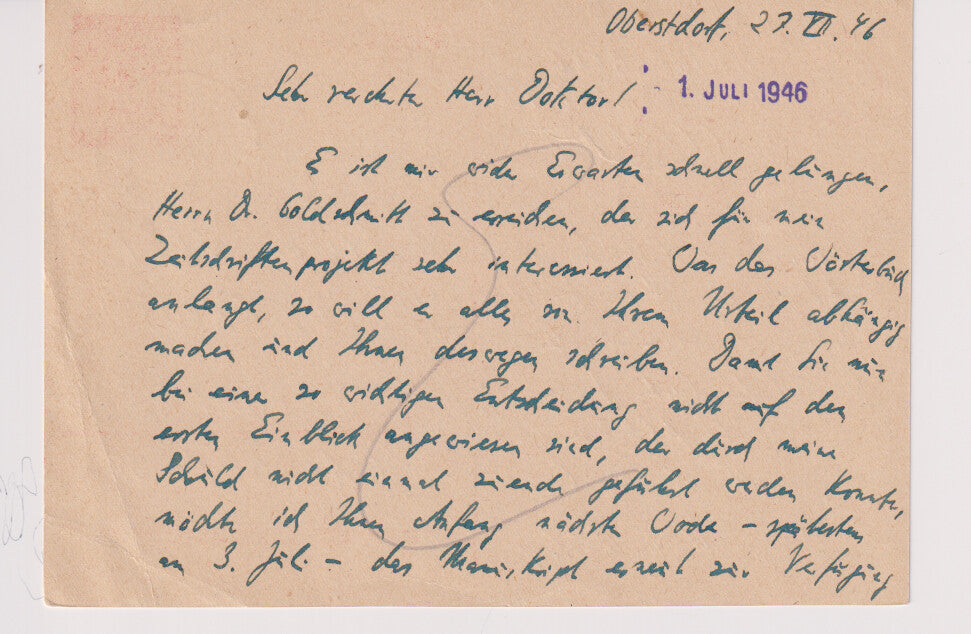 Oberstdorf, 27. VI. 46
Sehr verehrter Herr Doktor!
1. JULI 1946
Es ist mir wider Erwarten schnell gelungen,
Herrn Dr. Goldschmitt zu erreichen, der sich für mein
Zeitschriftenprojekt sehr interessiert. Was das Wörterbuch
anlangt, so will er alles von Ihrem Urteil abhängig
machen und Ihnen deswegen schreiben. Damit Sie nun
bei einer so wichtigen Entscheidung nicht auf den
ersten Einblick angewiesen sind, der durch meine
Schuld nicht einmal zuende geführt werden konnte,
möchte ich Ihnen Anfang nächster Woche – spätestens
am 3. Juli – das Manuskript erneut zur Verfügung